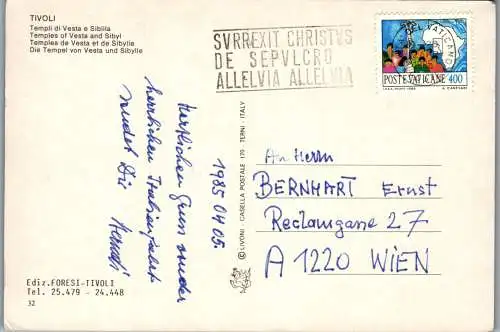 TIVOLI
Templi di Vesta e Sibilla
Temples of Vesta and Sibyl
Temples de Vesta et de Sibylle
Die Tempel von Vesta und Sibylle
SVRREXIT CHRISTVS
DE SEPVLCRO
ALLELVIA ALLELVIA
POSTE VATICANE 400
1985 04 05
Herzlichen Gruss
herrlichen Italienfahrt
sendet Dir
© LIVONI - CASELLA POSTALE 170 - TERNI - ITALY
An Herrn
BERNHART Ernst
Reclamgasse 27
A 1220 WIEN
Ediz. FORESI-TIVOLI
Tel. 25.479 - 24.448
32